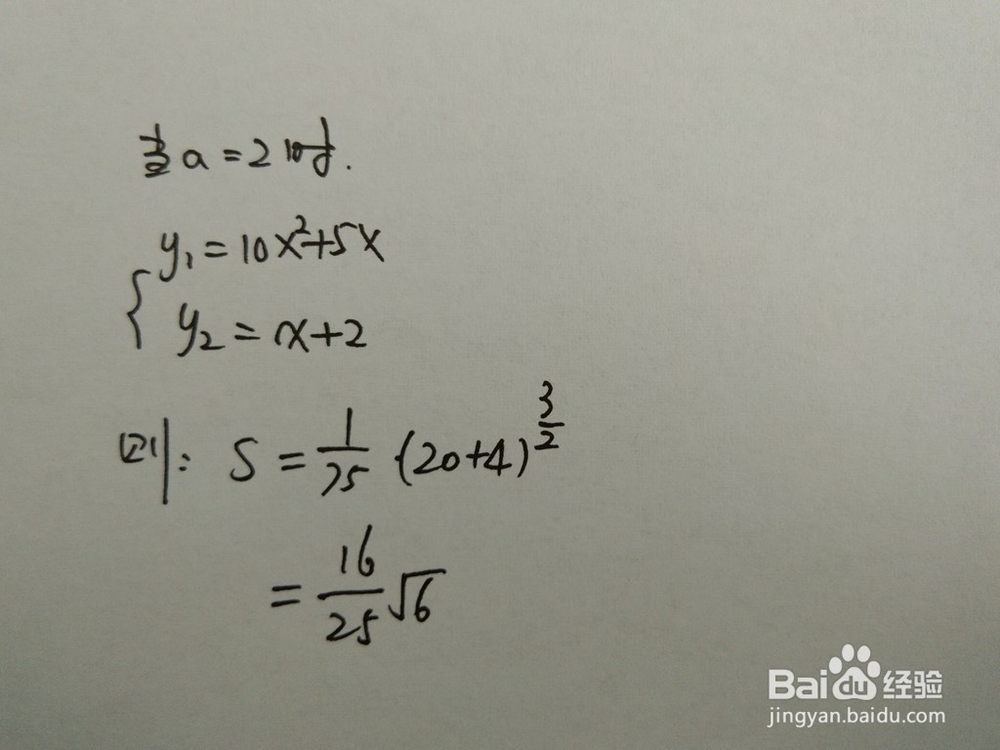 当a=2时.
y₁=10x²+5x
y₂=x+2
则: S=1/75 (20+4)^(3/2)
=16/25 √6
Baidu经验
jingyan.baidu.com